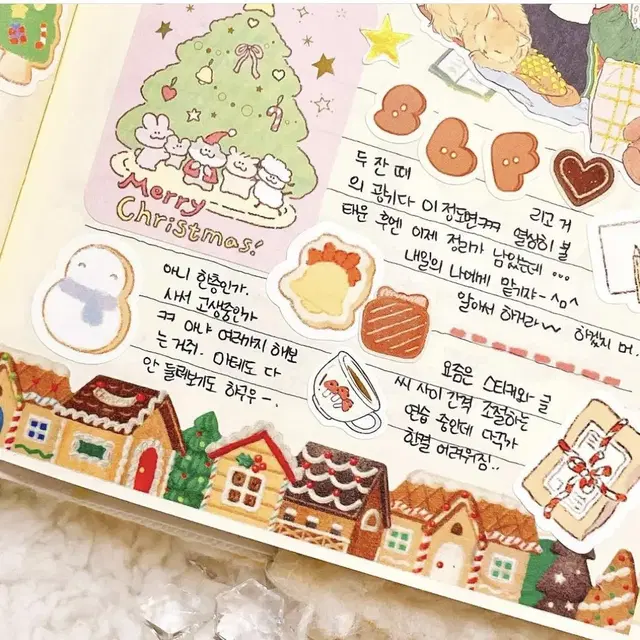 Merry
Christmas!
두 잔 때
리고 거
의 광기다 이 정도면ㅋㅋ 열심히 불
태운 후엔 이제 정리가 남았는데 ...
내일의 나에게 맡기자-^o^
알아서 하거라~ 하겠지 머.
아니 한층인가.
사서 고생중인가
ㅋㅋ 아냐 여러가지 해보
는 거쥐. 마테도 다
안 하구우 -.
요즘은 스티커와 글
씨 사이 간격 조절하는
연습 중인데
어려워짐..